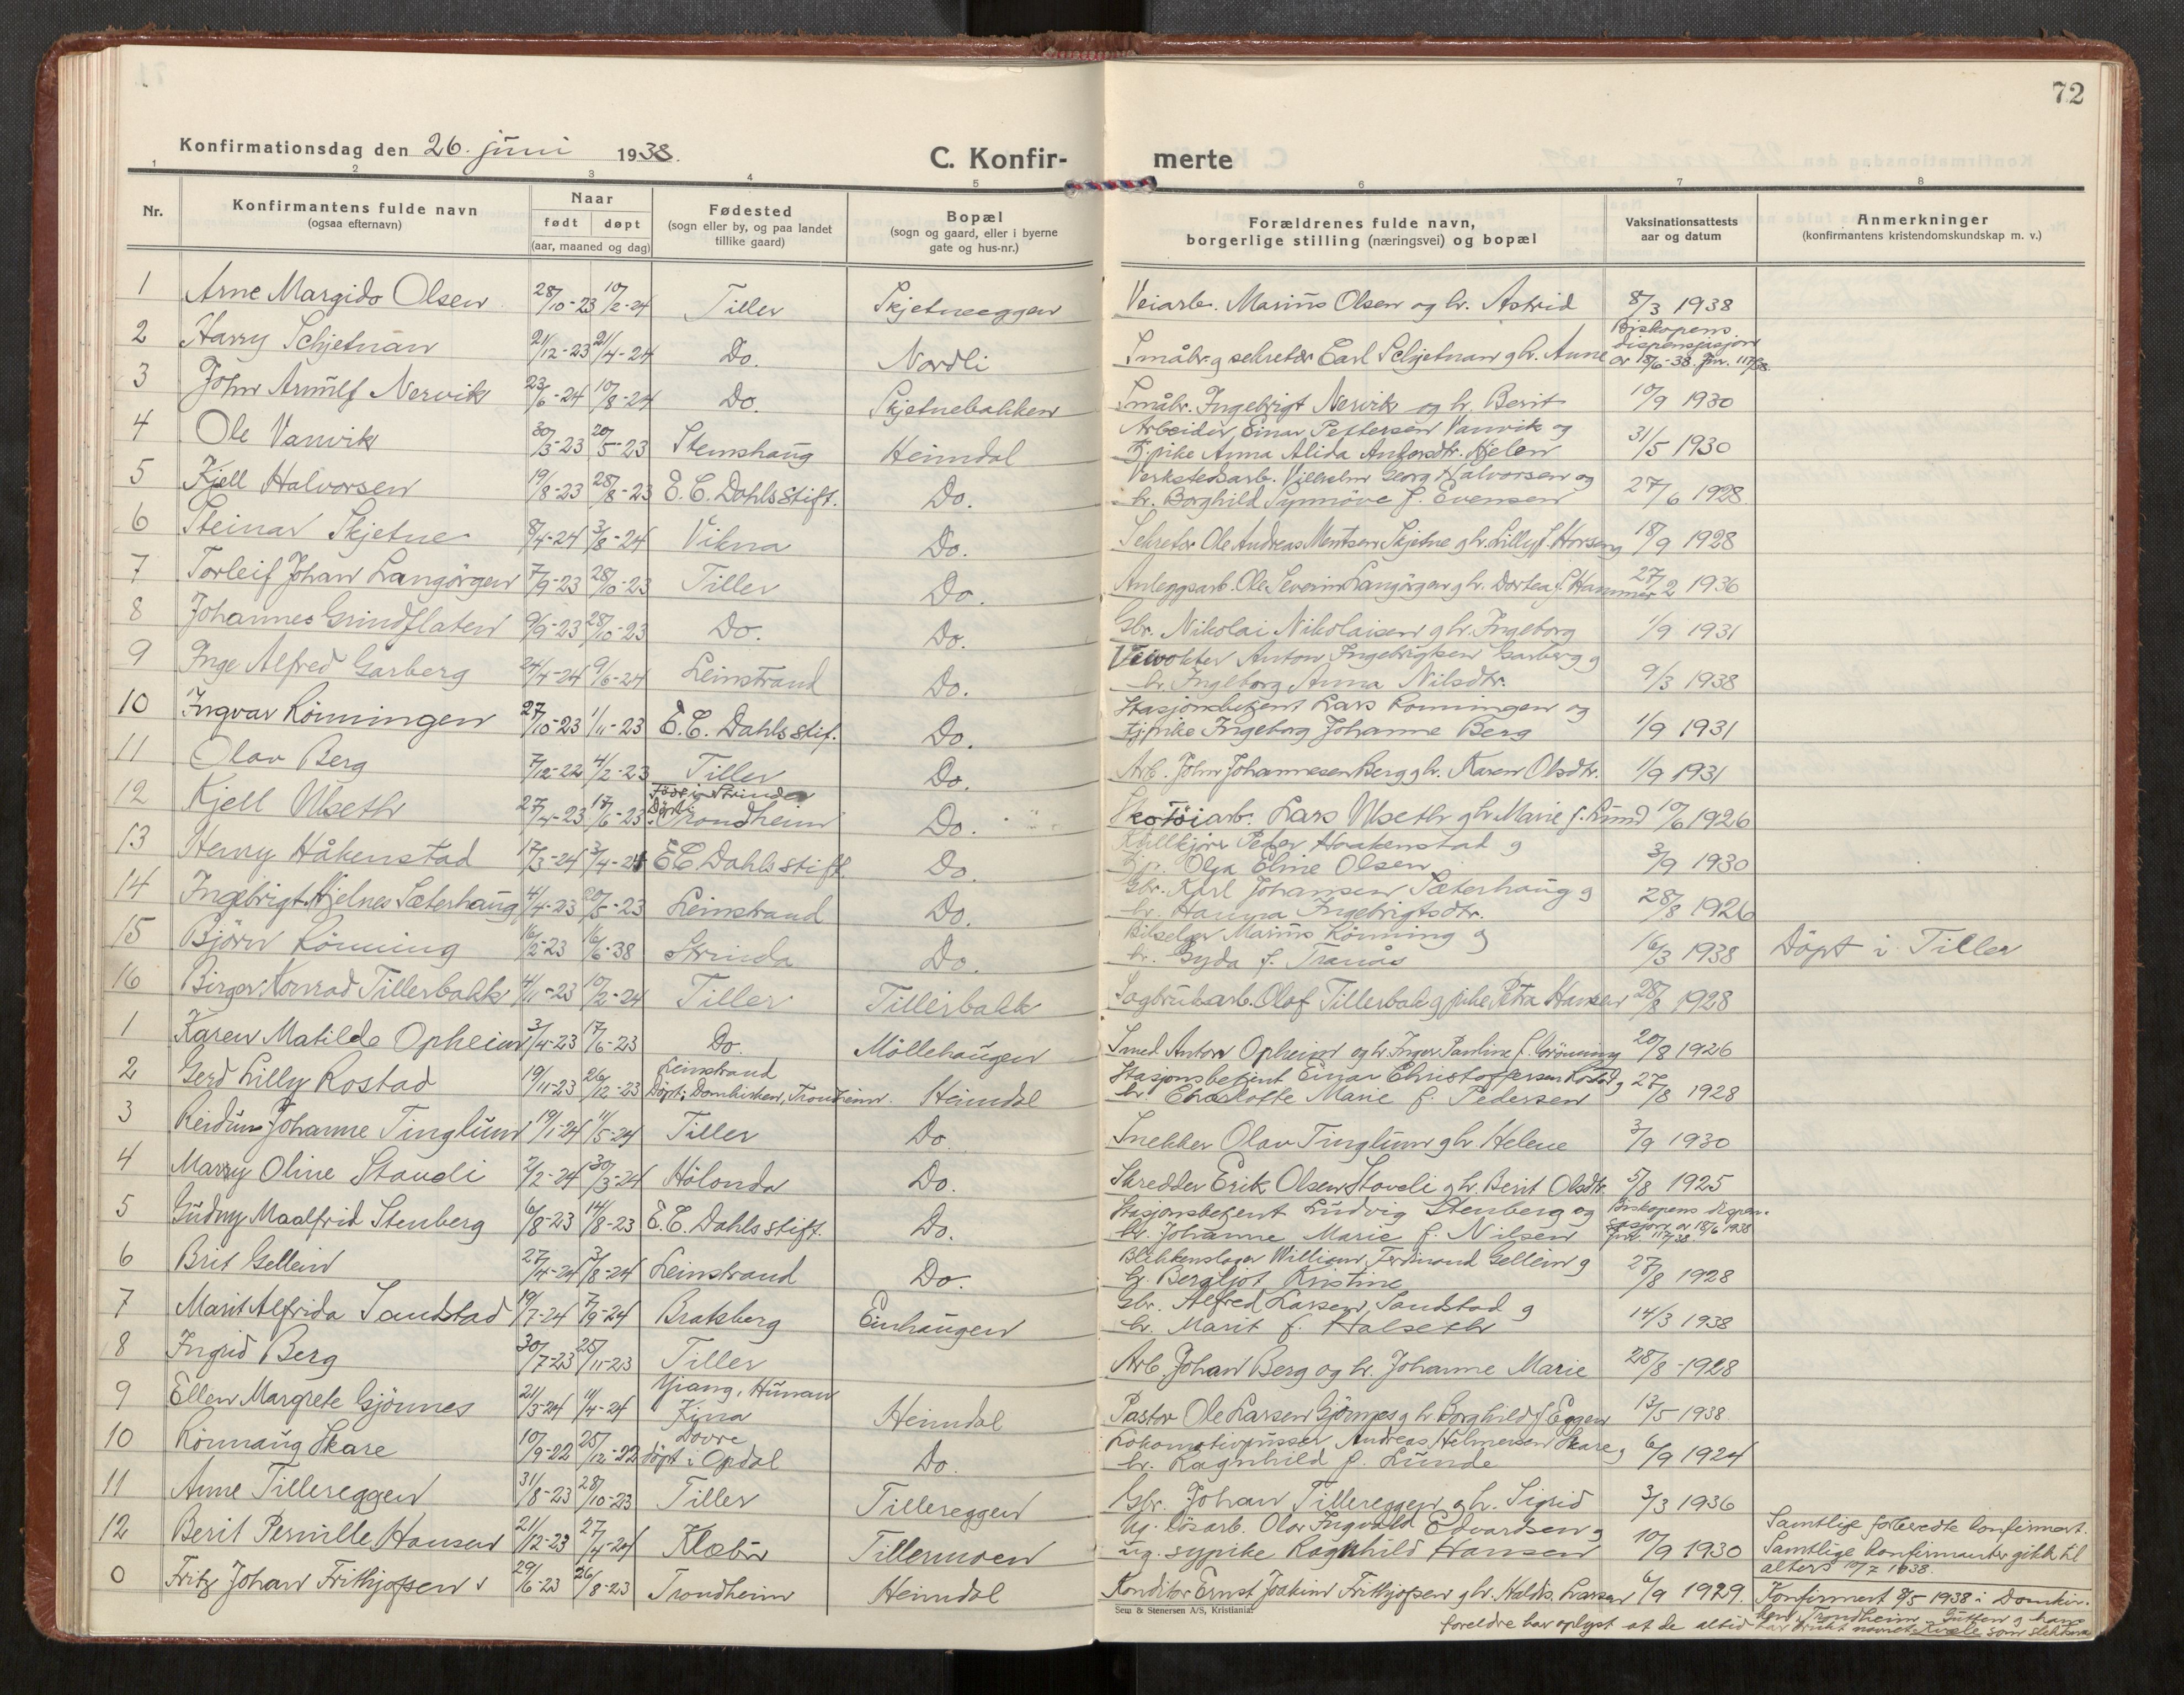 72
Konfirmationsdag den 26. juni 1938.
C. Konfir- merte
1 2 3 4 5 6 7 8
Nr. | Konfirmantens fulde navn (ogsaa efternavn) | Naar født døpt (aar, maaned og dag) | Fødested (sogn eller by, og paa landet tillike gaard) | Bopæl (sogn og gaard, eller i byerne gate og hus-nr.) | Forældrenes fulde navn, borgerlige stilling (næringsvei) og bopæl | Vaksinationsattests aar og datum | Anmerkninger (konfirmantens kristendomskundskap m. v.)
1 Arne Margido Olsen 28/10-23 10/2-24 Tiller Skjetneeggen Veiarb. Marius Olsen og hr. Astrid 8/3 1938
2 Harry Schjetnan 21/12-23 21/4-24 Do. Nordli Småbr. g sekretær Earl Schjetnan g hr. Anne Biskopens dispensasjon av 18/6-38. Jnr. 1157/38.
3 John Arnulf Nervik 23/6-24 10/8-24 Do. Skjetnebakken Småbr. Ingebrigt Nervik og hr. Berit 10/9 1930
4 Ole Vanvik 30/3-23 20/5-23 Stemshaug Heimdal Arbeider Einar Pettersen Vanvik og tj.pike Anna Alida Antonsdtr. Hjelen 31/5 1930
5 Kjell Halvorsen 19/8-23 28/8-23 E. C. Dahls stift. Do. Verkstedsarb. Vilhelm Georg Halvorsen og hr. Borghild Synnöve f. Evensen 27/6 1928
6 Steinar Skjetne 8/4-24 3/8-24 Vikna Do. Sekretær Ole Andreas Mentsen Skjetne g hr. Lilly f. Horseng 18/9 1928
7 Torleif Johan Langörgen 7/9-23 28/10-23 Tiller Do. Anleggsarb. Ole Severin Langörgen g hr. Dortea f. Hammer 27/2 1936
8 Johannes Grindflaten 9/9-23 28/10-23 Do. Do. Gbr. Nikolai Nikolaisen g hr. Ingeborg 1/9 1931
9 Inge Alfred Garberg 24/4-24 9/6-24 Leinstrand Do. Veivokter Anton Ingebrigtsen Garberg g hr. Ingeborg Anna Nilsdtr. 9/3 1938
10 Ingvar Rönningen 27/10-23 1/11-23 E. C. Dahls stif. Do. Stasjonsbetjent Lars Rönningen og tj.pike Ingeborg Johanne Berg 1/9 1931
11 Olav Berg 7/12-22 4/2-23 Tiller Do. Arb. John Johannesen Berg g hr. Karen Olsdtr. 1/9 1931
12 Kjell Ulseth 27/4-23 17/6-23 Född i Strinda Döpt i Trondheim Do. Skotöiarb. Lars Ulseth g hr. Marie f. Lund 10/6 1926
13 Henry Håkenstad 17/3-24 3/4-24 E C Dahls stift Do. Kullkjörer Peder Haakenstad g tj.p. Olga Eline Olsen 3/9 1930
14 Ingebrigt Hjelnes Sæterhaug 4/4-23 20/5-23 Leinstrand Do. Gbr. Karl Johansen Sæterhaug g hr. Hanna Ingebrigtsdtr. 28/8 1926
15 Björn Rönning 16/2-23 16/6-38 Strinda Do. Bilselger Marius Rönning g hr. Gyda f. Tranås 16/3 1938 Döpt i Tiller
16 Birger Konrad Tillerbakk 4/11-23 10/2-24 Tiller Tillerbakk Sagbrukarb. Olaf Tillerbakk g pike Petra Hansen 28/8 1928
1 Karen Matilde Opheim 3/4-23 17/6-23 Do. Möllehaugen Smed Anton Opheim og hr. Inger Pauline f. Grönning 20/8 1926
2 Gerd Lilly Rostad 19/11-23 26/12-23 Leinstrand Döpt: Domkirken, Trondheim. Heimdal Stasjonsbetjent Einar Christoffersen Rostad g hr. Charlotte Marie f. Pedersen 27/8 1928
3 Reidun Johanne Tinglum 19/1-24 11/5-24 Tiller Do Snekker Olav Tinglum g hr. Helene 3/9 1930
4 Marry Oline Staveli 2/2-24 30/3-24 Hölonda Do. Skredder Erik Olsen Staveli g hr. Berit Olsdtr. 5/8 1925
5 Gudny Maalfrid Stenberg 6/8-23 14/8-23 E. C. Dahls stift. Do. Stasjonsbetjent Ludvig Stenberg og hr. Johanne Marie f. Nilsen Biskopens dispensasjon av 18/6 1938
6 Brit Gellein 27/4-24 3/8-24 Leinstrand Do. Blikkenslager William Ferdinand Gellein g hr. Bergljot Kristine 27/8 1928
7 Marit Alfrida Sandstad 19/7-24 7/9-24 Bratsberg Einhaugen Gbr. Alfred Larsen Sandstad g hr. Marit f. Halseth 14/3 1938
8 Ingrid Berg 30/7-23 25/11-23 Tiller Arb. Johan Berg og hr. Johanne Marie 28/8-1928
9 Ellen Margrete Gjönnes 21/3-24 11/4-24 Yiang, Hunan Kina Heimdal Pastor Ole Larsen Gjönnes g hr. Borghild f Eggen 13/5 1938
10 Rönnaug Skare 10/9-22 25/12-22 Dovre döpt i Opdal Do. Lokomotivpusser Andreas Helmersen Skare g hr. Ragnhild f. Lunde 6/9 1924
11 Anne Tillereggen 31/8-23 28/10-23 Tiller Tillereggen Gbr. Johan Tillereggen g hr. Sigrid 3/3 1936
12 Berit Pernille Hansen 21/12-23 27/4-24 Klæbu Tillermoen Ug. lösarb. Olav Ingvald Edvardsen g ug. sypike Ragnhild Hansen 10/9 1930 Samtlige forberedte konfirmert. Samtlige konfirmanter gikk til alters 10/7 1938.
0 Fritz Johan Frithjofsen 29/6-23 26/8-23 Trondheim Heimdal Konditor Ernst Joakim Frithjofsen g hr. Haldis Larsen 6/9 1929. Konfirmert 8/5 1938 i Domkirken, Trondheim. Gutten g hans
foreldre har oplyst at de altid har brukt navnet Kvåle som slektsnavn
Sem & Stenersen A/S, Kristiania.